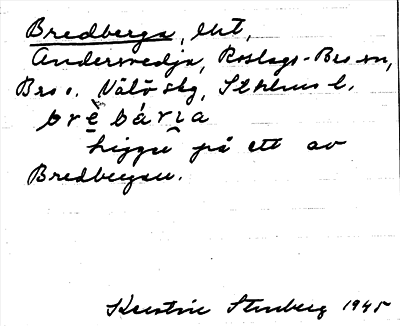 Bredberga, lht,
Andersvedja, Roslags-Bro sn,
Bro o. Vätö skg, Sthlms l.
brebárıa
ligger på ett av
Bredbergen.
Kerstin Stenberg 1945